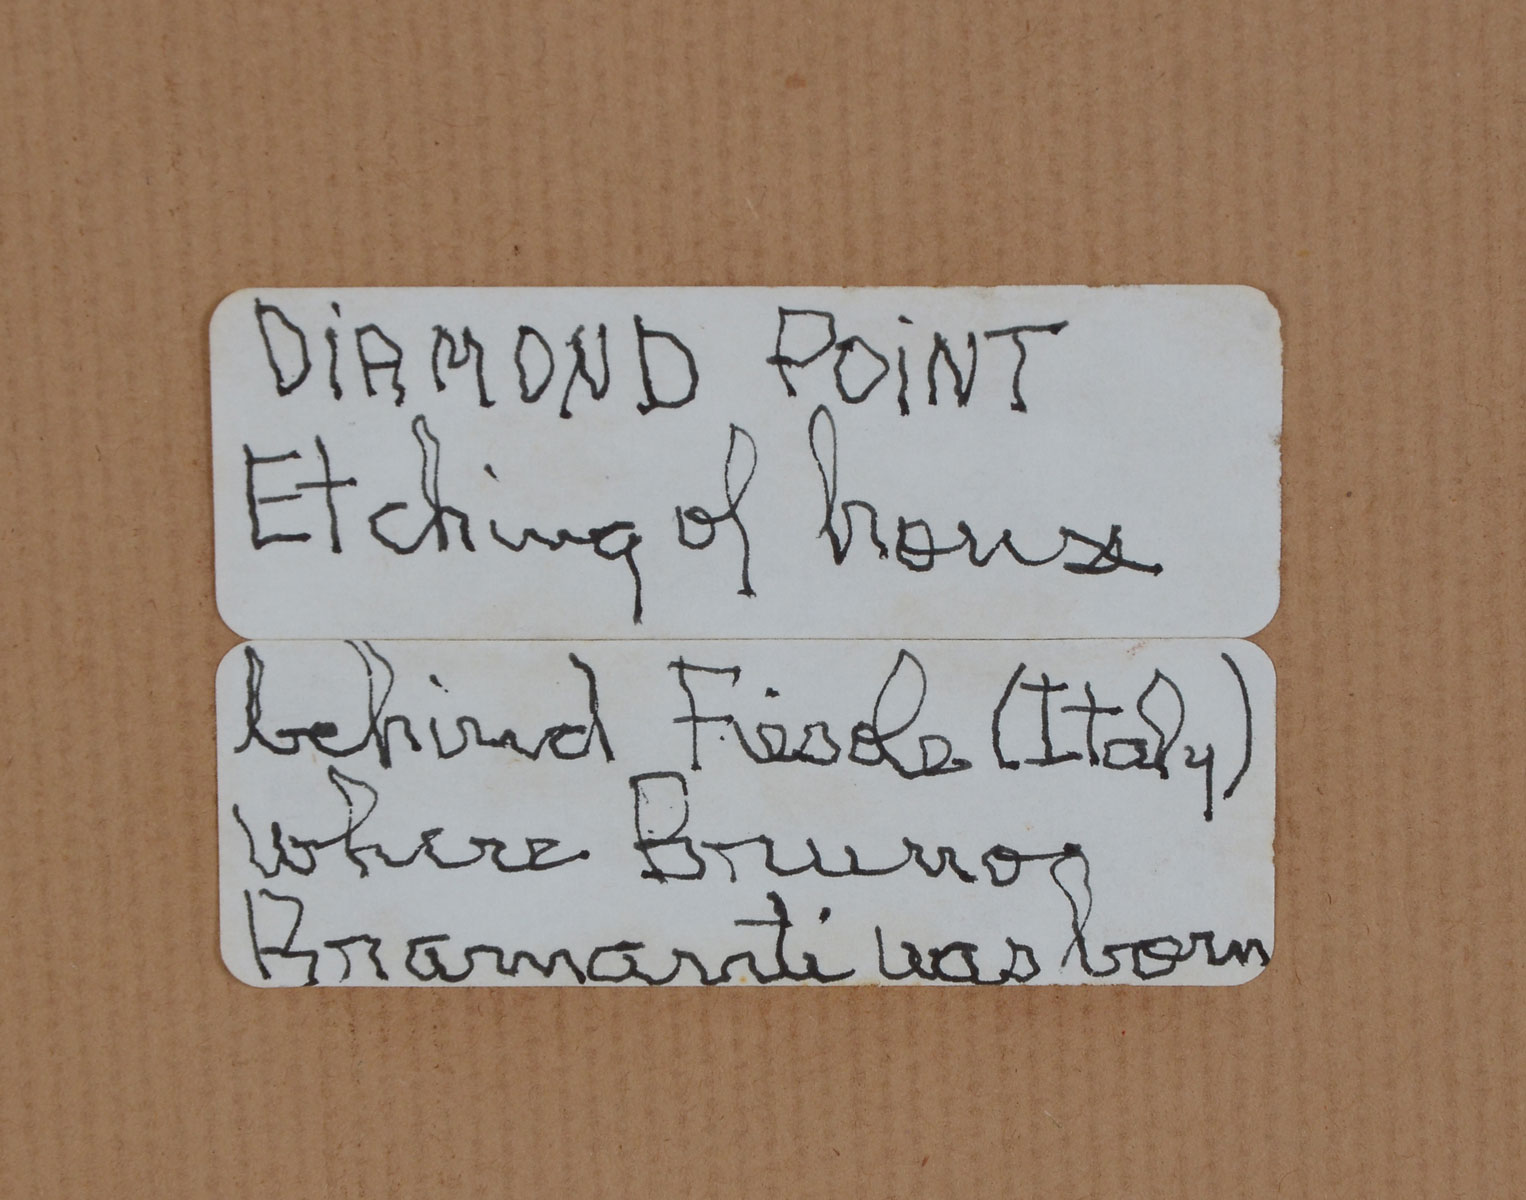 DiAMOND POiNT
Etching of house
behind Fiesole (Italy)
where Bruno
Bramanti was born